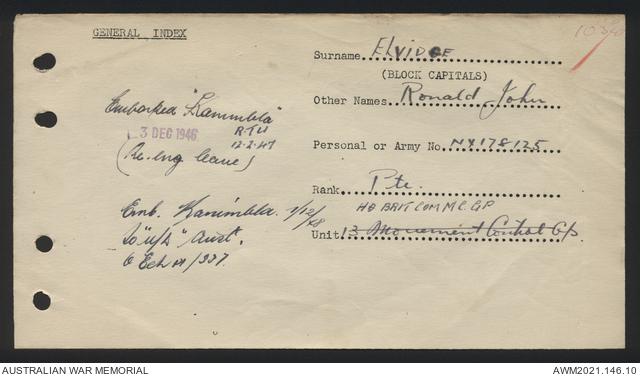 GENERAL INDEX
Surname ELVIDGE
(BLOCK CAPITALS)
Other Names Ronald John
Personal or Army No. NX178125
Rank Pte.
HQ BRIT COM M.C. GP
Unit 13 Movement Control Gp
Embarked "Kanimbla"
3 DEC 1946
RTU
12.2.47
(Re-eng leave)
Emb. Kanimbla. 1/12/48
to Aust.
AUSTRALIAN WAR MEMORIAL
AWM2021.146.10